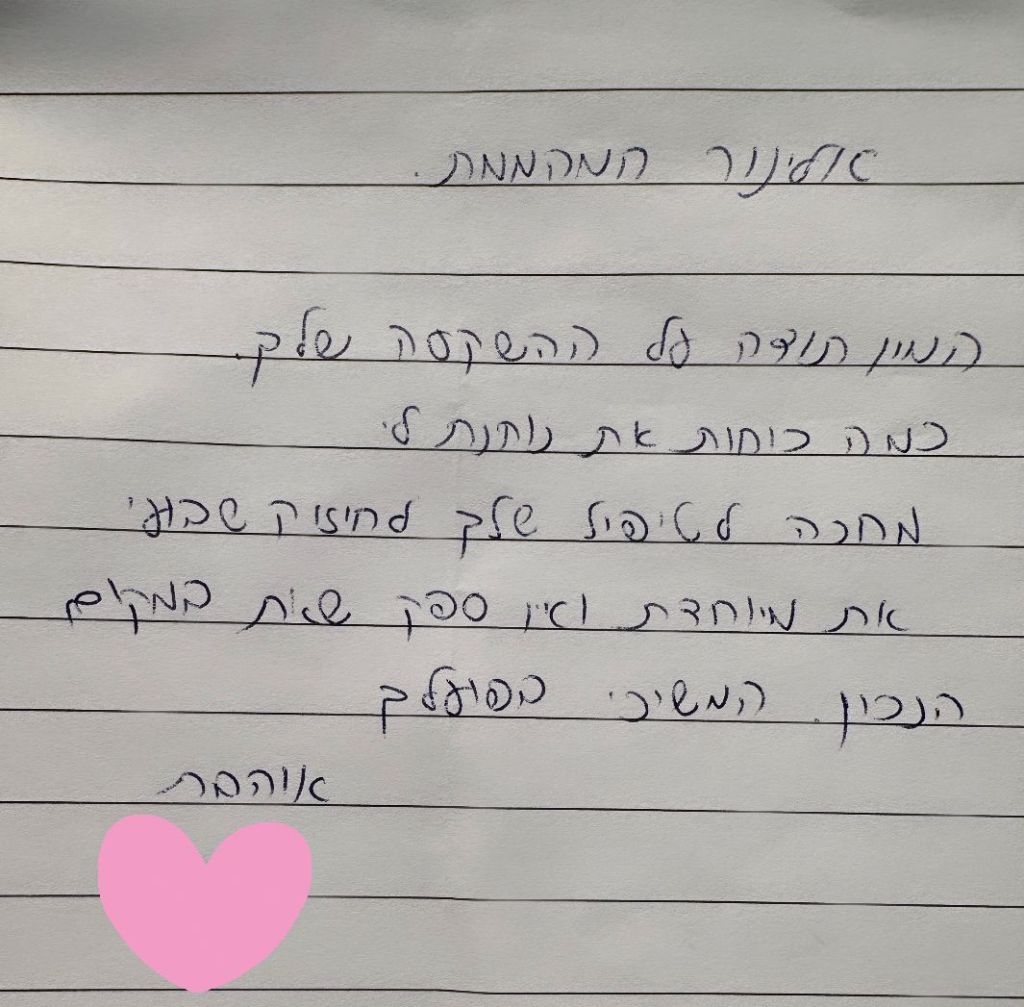 אלינור המהממת.
המון תודה על ההשקסה שלך.
כמה כוחות את נותנת לי
מחכה לטיפיל שלך לחיזוק שבועי
את מיוחדת ואין ספק שאת במקום
הנכון. המשיכי בפועלך
אוהבת